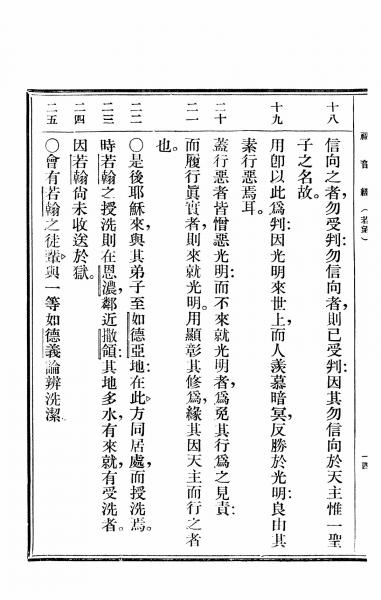 福音經（若第）
一四
十八
信向之者，勿受判；勿信向者，則已受判；因其勿信向於天主惟一聖
子之名故。
十九
用卽以此爲判；因光明來世上，而人羨慕暗冥，反勝於光明；良由其
素行惡焉耳。
二十
蓋行惡者皆憎惡光明；而不來就光明者，爲免其行爲之見責；
二一
而履行眞實者，則來就光明。用顯彰其修爲，緣其因天主而行之者
也。
二二
〇是後耶穌來，與其弟子至如德亞地；在此方同居處，而授洗焉。
二三
〇時若翰之授洗則在恩濃，鄰近撒領；其地多水，有來就有受洗者。
二四
因若翰尙未收送於獄。
二五
〇會有若翰之徒輩與一等如德義論辨洗潔